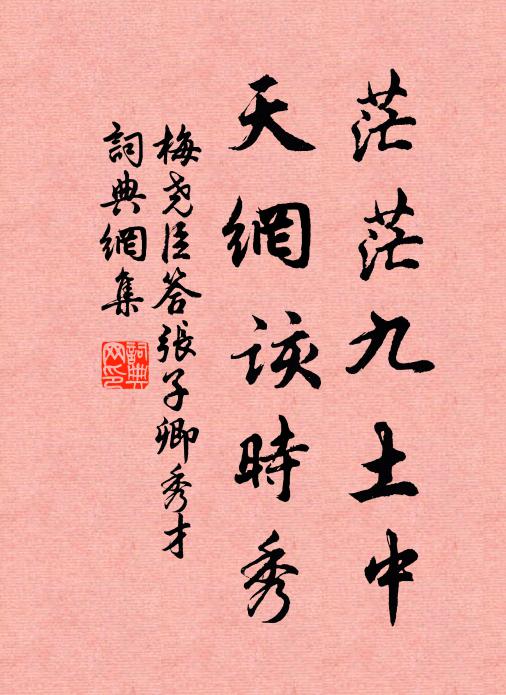 茫茫九土中
天網該時秀
梅尧臣答張子卿秀才
詞典網集
詞典
网印